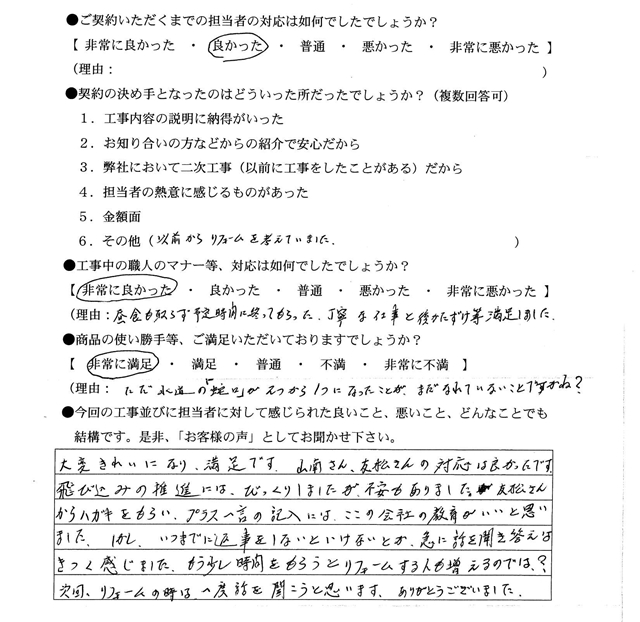 ●ご契約いただくまでの担当者の対応は如何でしたでしょうか？
【 非常に良かった ・ 良かった ・ 普通 ・ 悪かった ・ 非常に悪かった 】
（理由： ）
●契約の決め手となったのはどういった所だったでしょうか？（複数回答可）
１．工事内容の説明に納得がいった
２．お知り合いの方などからの紹介で安心だから
３．弊社において二次工事（以前に工事をしたことがある）だから
４．担当者の熱意に感じるものがあった
５．金額面
６．その他（以前からリフォームを考えていました. ）
●工事中の職人のマナー等、対応は如何でしたでしょうか？
【 非常に良かった ・ 良かった ・ 普通 ・ 悪かった ・ 非常に悪かった 】
（理由：昼食も取らず予定時間に終ってもらった.丁寧な仕事と後かたずけ等満足しました.
●商品の使い勝手等、ご満足いただいておりますでしょうか？
【 非常に満足 ・ 満足 ・ 普通 ・ 不満 ・ 非常に不満 】
（理由： ただ水道の「蛇口」が2つから1つになったことが、まだなれていないことですかね？
●今回の工事並びに担当者に対して感じられた良いこと、悪いこと、どんなことでも
結構です。是非、「お客様の声」としてお聞かせ下さい。
大変きれいになり、満足です. 山南さん、友松さんの対応は良かったです
飛び込みの推進には、びっくりしましたが、不安もありました。友松さん
からハガキをもらい、プラス一言の記入には、ここの会社の教育がいいと思い
ました. しかし、いつまでに返事をしないといけないとか、急に話を聞き答えは
きつく感じました. もう少し時間をもらうとリフォームする人も増えるのでは、？
次回、リフォームの時は、一度話を聞こうと思います、ありがとうございました.